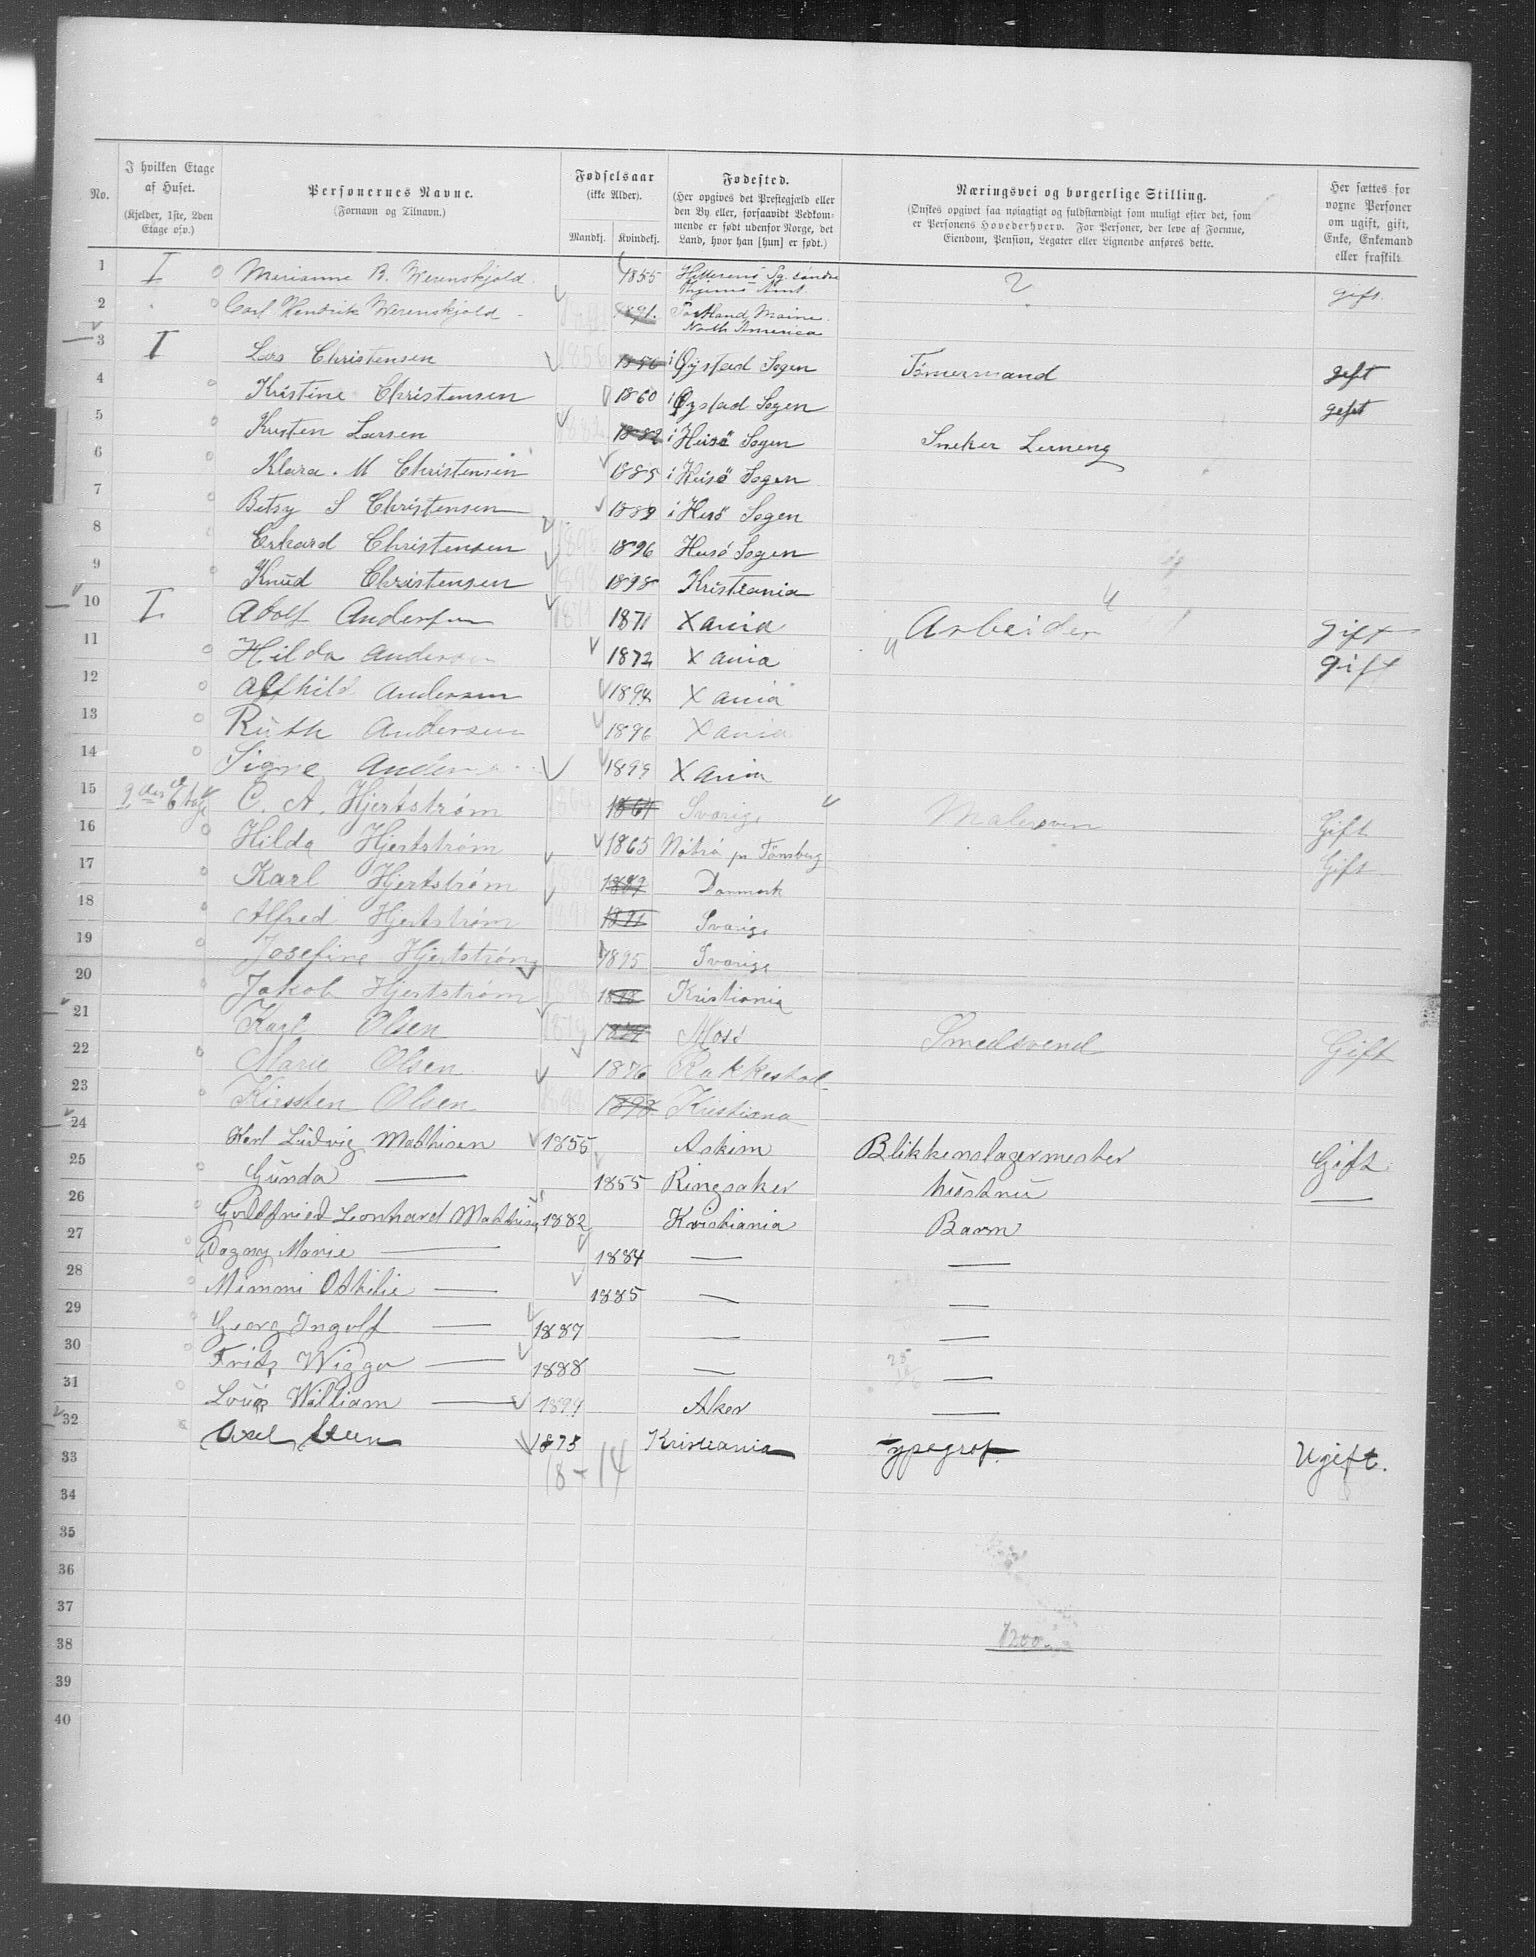 No.
I hvilken Etage af Huset.
(Kjelder, 1ste, 2den Etage osv.)
Personernes Navne.
(Fornavn og Tilnavn.)
Fødselsaar
(ikke Alder).
Mandkj. Kvindekj.
Fødested.
(Her opgives det Prestegjæld eller den By eller, forsaavidt Vedkommende er født udenfor Norge, det Land, hvor han [hun] er født.)
Næringsvei og borgerlige Stilling.
(Ønskes opgivet saa nøiagtigt og fuldstændigt som muligt efter det, som er Personens Hovederhverv. For Personer, der leve af Formue, Eiendom, Pension, Legater eller Lignende anføres dette.
Her sættes for voxne Personer om ugift, gift, Enke, Enkemand eller fraskilt.
1 I Marianne B. Werenskjold 1855 Hitterens Pg. søndre Thjems Amt gift.
2 Carl Hendrik Werenskjold 1891. Portland, Maine. North America
3 I Lars Christensen 1856 1856 i Øystad Sogen Tømermand geft
4 Kristine Christensen 1860 i Øystad Sogen geft
5 Kristen Larsen 1882 1882 i Heisö Sogen Sneker Lerneng
6 Klara. M Christensen 1885 i Heisö Sogen
7 Betsy S Christensen 1889 i Hesö Sogen
8 Erhard Christensen 1896 1896 Heisö Sogen
9 Knud Christensen 1898 1898 Kristeania
10 I Adolf Andersen 1871 1871 Xania Arbeider gift
11 Hilda Andersen 1872 Xania gift
12 Alfhild Andersen 1894 Xania
13 Ruth Andersen 1896 Xania
14 Signe Anders 1899 Xania
15 2den Etage C. A. Hjertstrøm 1861 Svarige Malersven Gift
16 Hilda Hjertstrøm 1865 Nøtrø pr Tønsberg Gift
17 Karl Hjertstrøm 1889 Danmark
18 Alfred Hjertstrøm 1891 1891 Svarige
19 Josefine Hjertstrøm 1895 Svarige
20 Jakob Hjertstrøm 1898 Kristiania
21 Karl Olsen 1874 Moss Smedsvend Gift
22 Marie Olsen 1876 Rakkestad
23 Kirsten Olsen 1898 Kristiana
24 Karl Ludvig Mathisen 1855 Askim Blikkenslagermester Gift
25 Gunda — 1855 Ringsaker Hüstrü —
26 Gottfried Leonhard Mathisen 1882 Kristiania Barn
27 Dagny Marie — 1884 — —
28 Mimmi Othilie — 1885 — —
29 Georg Ingolf — 1887 — —
30 Fritz Wiggo — 1888 — —
31 Louis William — 1899 Aker —
32 Axel Steen 1875 Kristiania Typograf. Ugift.
33 18 + 14
34
35
36
37
38 1200
39
40